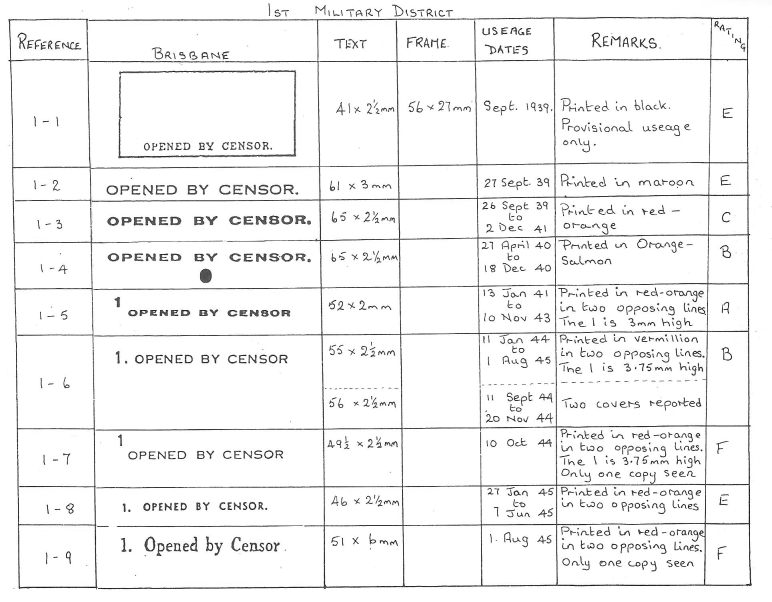 1ST MILITARY DISTRICT
REFERENCE BRISBANE TEXT FRAME. USEAGE DATES REMARKS. RATING
1-1 OPENED BY CENSOR. 41 x 2½mm 56 x 27mm Sept. 1939. Printed in black.
Provisional useage
only. E
1-2 OPENED BY CENSOR. 61 x 3mm 27 Sept. 39 Printed in maroon E
1-3 OPENED BY CENSOR. 65 x 2½mm 26 Sept 39
to
2 Dec 41 Printed in red-
orange C
1-4 OPENED BY CENSOR. 65 x 2½mm 27 April 40
to
18 Dec 40 Printed in Orange-
Salmon B
1-5 1 OPENED BY CENSOR 52 x 2mm 13 Jan 41
to
10 Nov 43 Printed in red-orange
in two opposing lines
The 1 is 3mm high A
1-6 1. OPENED BY CENSOR 55 x 2½mm 11 Jan 44
to
1 Aug 45 Printed in vermillion
in two opposing lines.
The 1 is 3.75mm high B
56 x 2½mm 11 Sept 44
to
20 Nov 44 Two covers reported
1-7 1 OPENED BY CENSOR 49½ x 2½mm 10 Oct 44 Printed in red-orange
in two opposing lines.
The 1 is 3.75mm high
Only one copy seen F
1-8 1. OPENED BY CENSOR. 46 x 2½mm 27 Jan 45
to
7 Jun 45 Printed in red-orange
in two opposing lines E
1-9 1. Opened by Censor. 51 x 6mm 1. Aug 45 Printed in red-orange
in two opposing lines.
Only one copy seen F